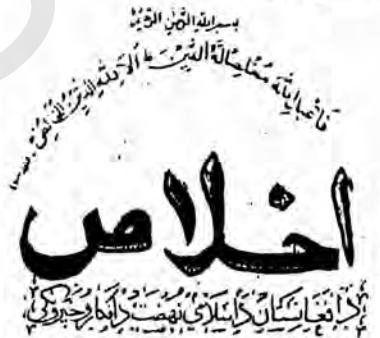 بسم الله الرحمن الرحيم
فاعبد الله مخلصا له الدين ط الا لله الدين الخالص
اخلاص
د افغانستان د اسلامي نهضت د افکارو خپروونکی